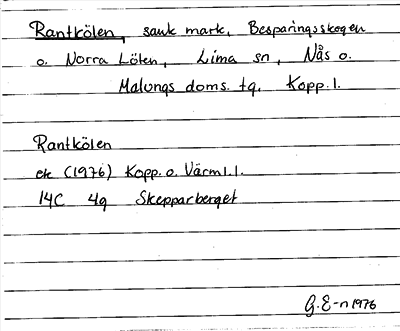 Rantkölen, sank mark, Besparingsskogen
o. Norra Löten, Lima sn, Nås o.
Malungs doms. tg. Kopp. l.
Rantkölen
ek (1976) Kopp. o. Värml. l.
14C 4g Skepparberget
G. E-n 1976